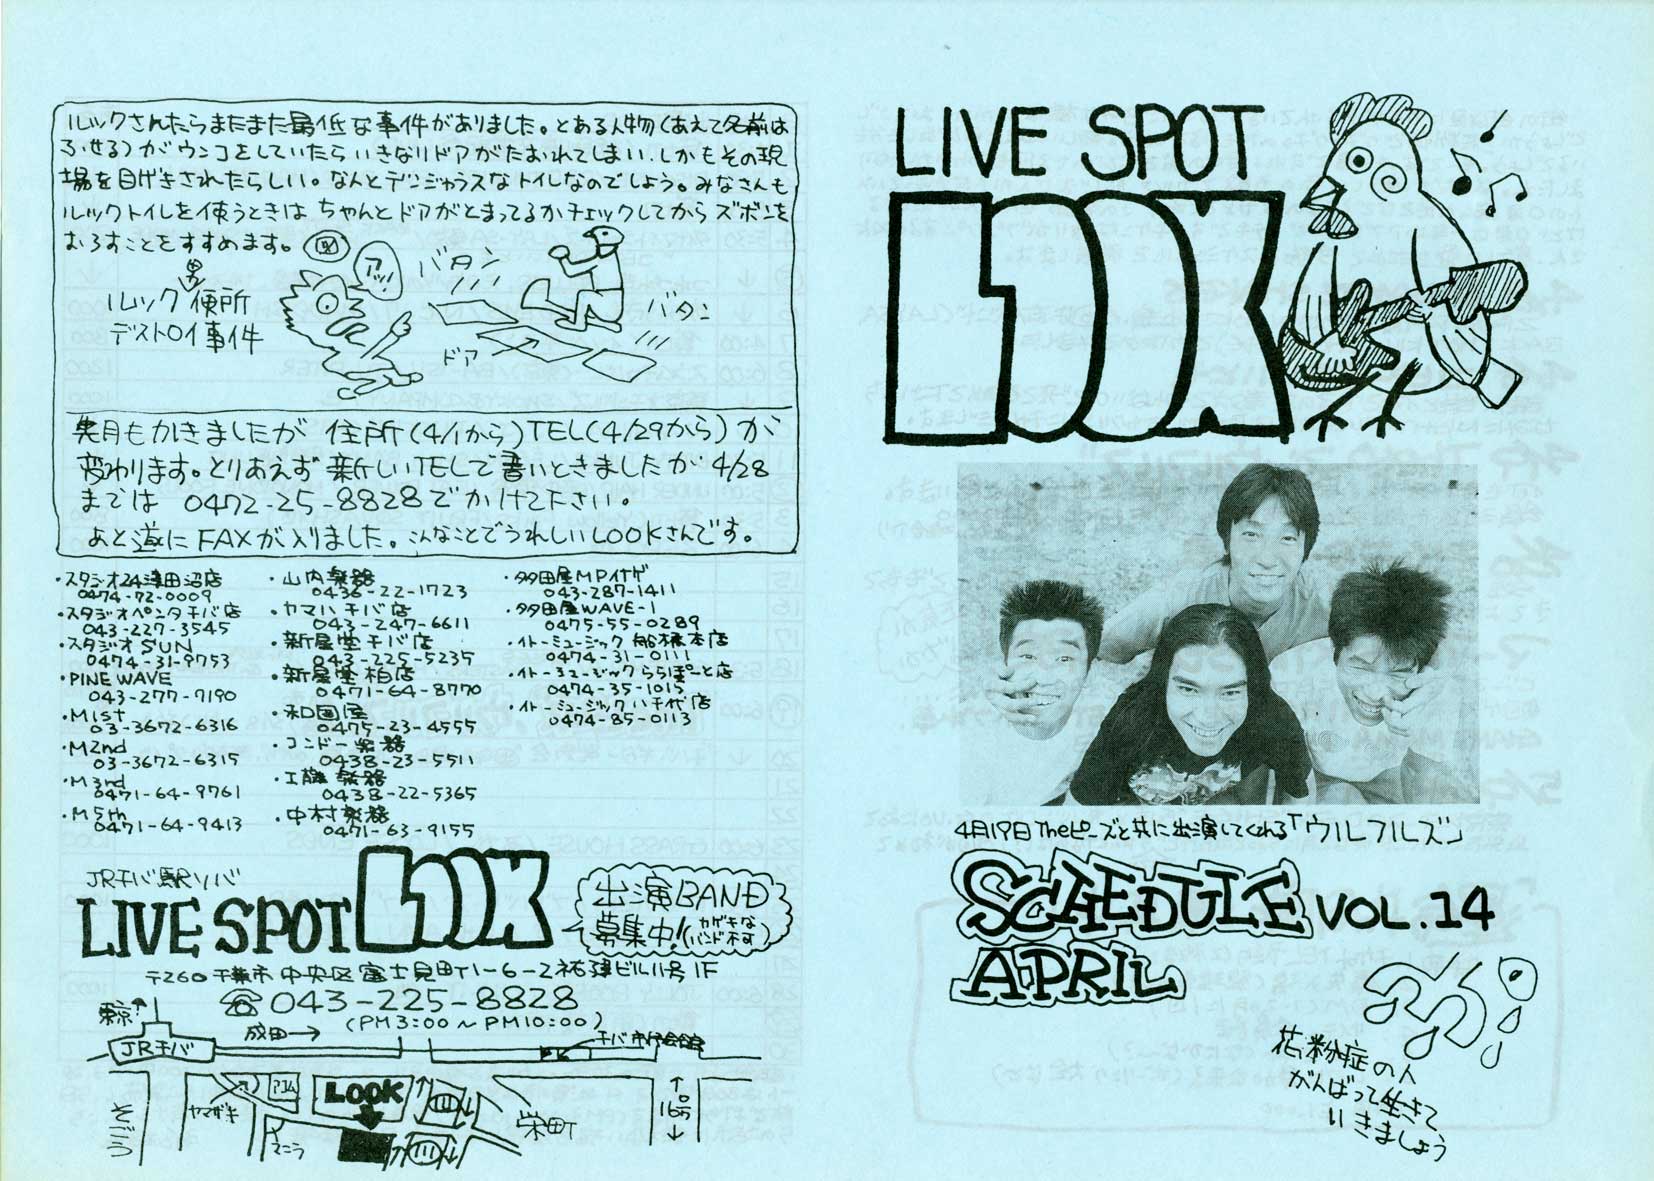 ルックさんたらまたまた最低な事件がありました。とある人物(あえて名前は
ふせる)がウンコをしていたらいきなりドアがたおれてしまい、しかもその現
場を目げきされたらしい。なんとデンジャラスなトイレなのでしょう。みなさんも
ルックトイレを使うときは ちゃんとドアがとまってるかチェックしてからズボンを
おろすことをすすめます。
男
ルック便所
デストロイ事件
アッ!
バタン
バタン
ドア
先月もかきましたが 住所(4/1から)TEL(4/29から)が
変わります。とりあえず新しいTELで書いときましたが4/28
までは 0472-25-8828でかけて下さい。
あと遂にFAXが入りました。こんなことでうれしいLOOKさんです。
・スタジオ24津田沼店
0474-72-0009
・スタジオペンタチバ店
043-227-3545
・スタジオSUN
0474-31-9753
・PINE WAVE
043-277-7190
・M1st
03-3672-6316
・M2nd
03-3672-6315
・M3rd
0471-64-9761
・M5th
0471-64-9413
・山内楽器
0436-22-1723
・ヤマハチバ店
043-247-6611
・新星堂チバ店
043-225-5235
・新星堂柏店
0471-64-8770
・和田屋
0475-23-4555
・コンドー楽器
0438-23-5511
・工藤楽器
0438-22-5365
・中村楽器
0471-63-9155
・多田屋MPイナゲ
043-287-1411
・多田屋WAVE-1
0475-55-0289
・イトーミュージック船橋本店
0474-31-0111
・イトーミュージックららぽーと店
0474-35-1015
・イトーミュージック八千代店
0474-85-0113
JRチバ駅ソバ
LIVE SPOT LOOK
出演BAND
募集中!(カゲキなバンド不可)
〒260 千葉市中央区富士見町1-6-2 祐建ビル11号 1F
☎043-225-8828
(PM3:00〜PM10:00)
東京
成田→
JRチバ
チバ市民会館
ヤマザキ
LOOK
マニラ
栄町
to
16号
そごう
LIVE SPOT
LOOK
4月19日Theピーズと共に出演してくれる「ウルフルズ」
SCHEDULE VOL.14
APRIL
花粉症の人
がんばって生きて
いきましょう